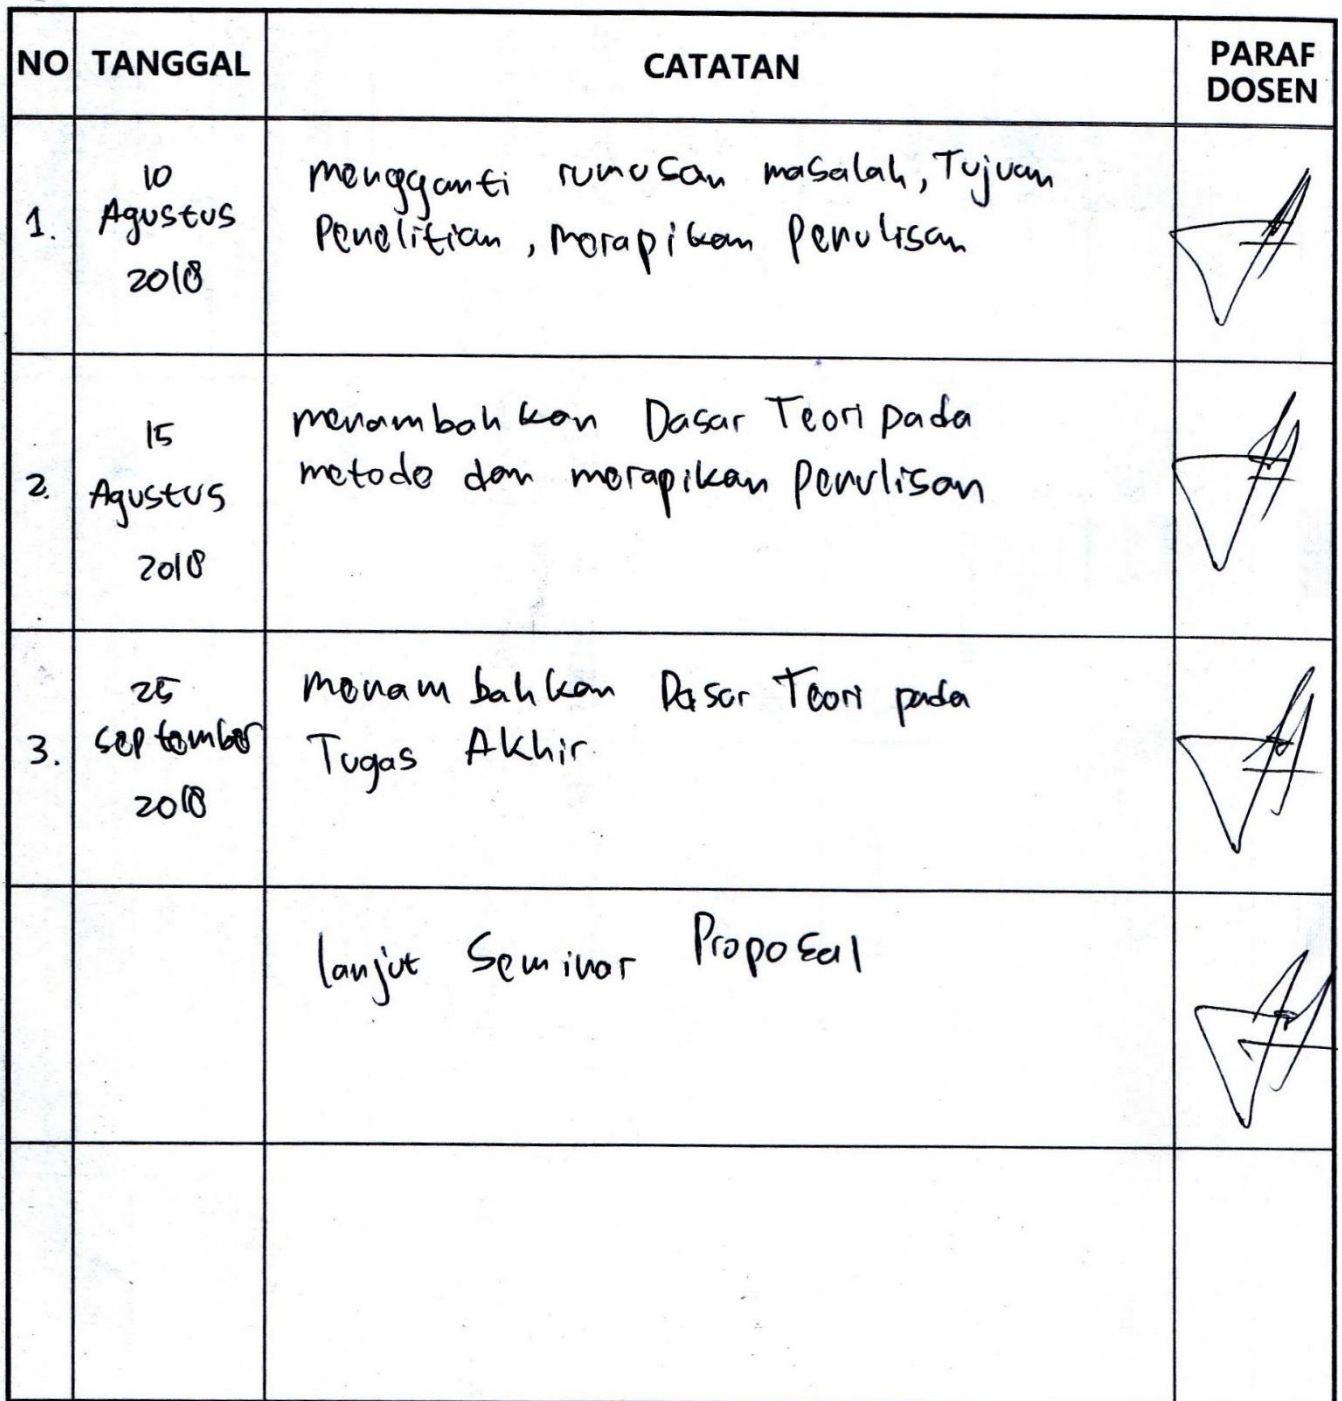 NO TANGGAL CATATAN PARAF DOSEN
1. 10 Agustus 2018
mengganti rumusan masalah, Tujuan
Penelitian, merapikan Penulisan
2. 15 Agustus 2018
menambahkan Dasar Teori pada
metode dan merapikan Penulisan
3. 25 September 2018
menambahkan Dasar Teori pada
Tugas Akhir
lanjut Seminar Proposal